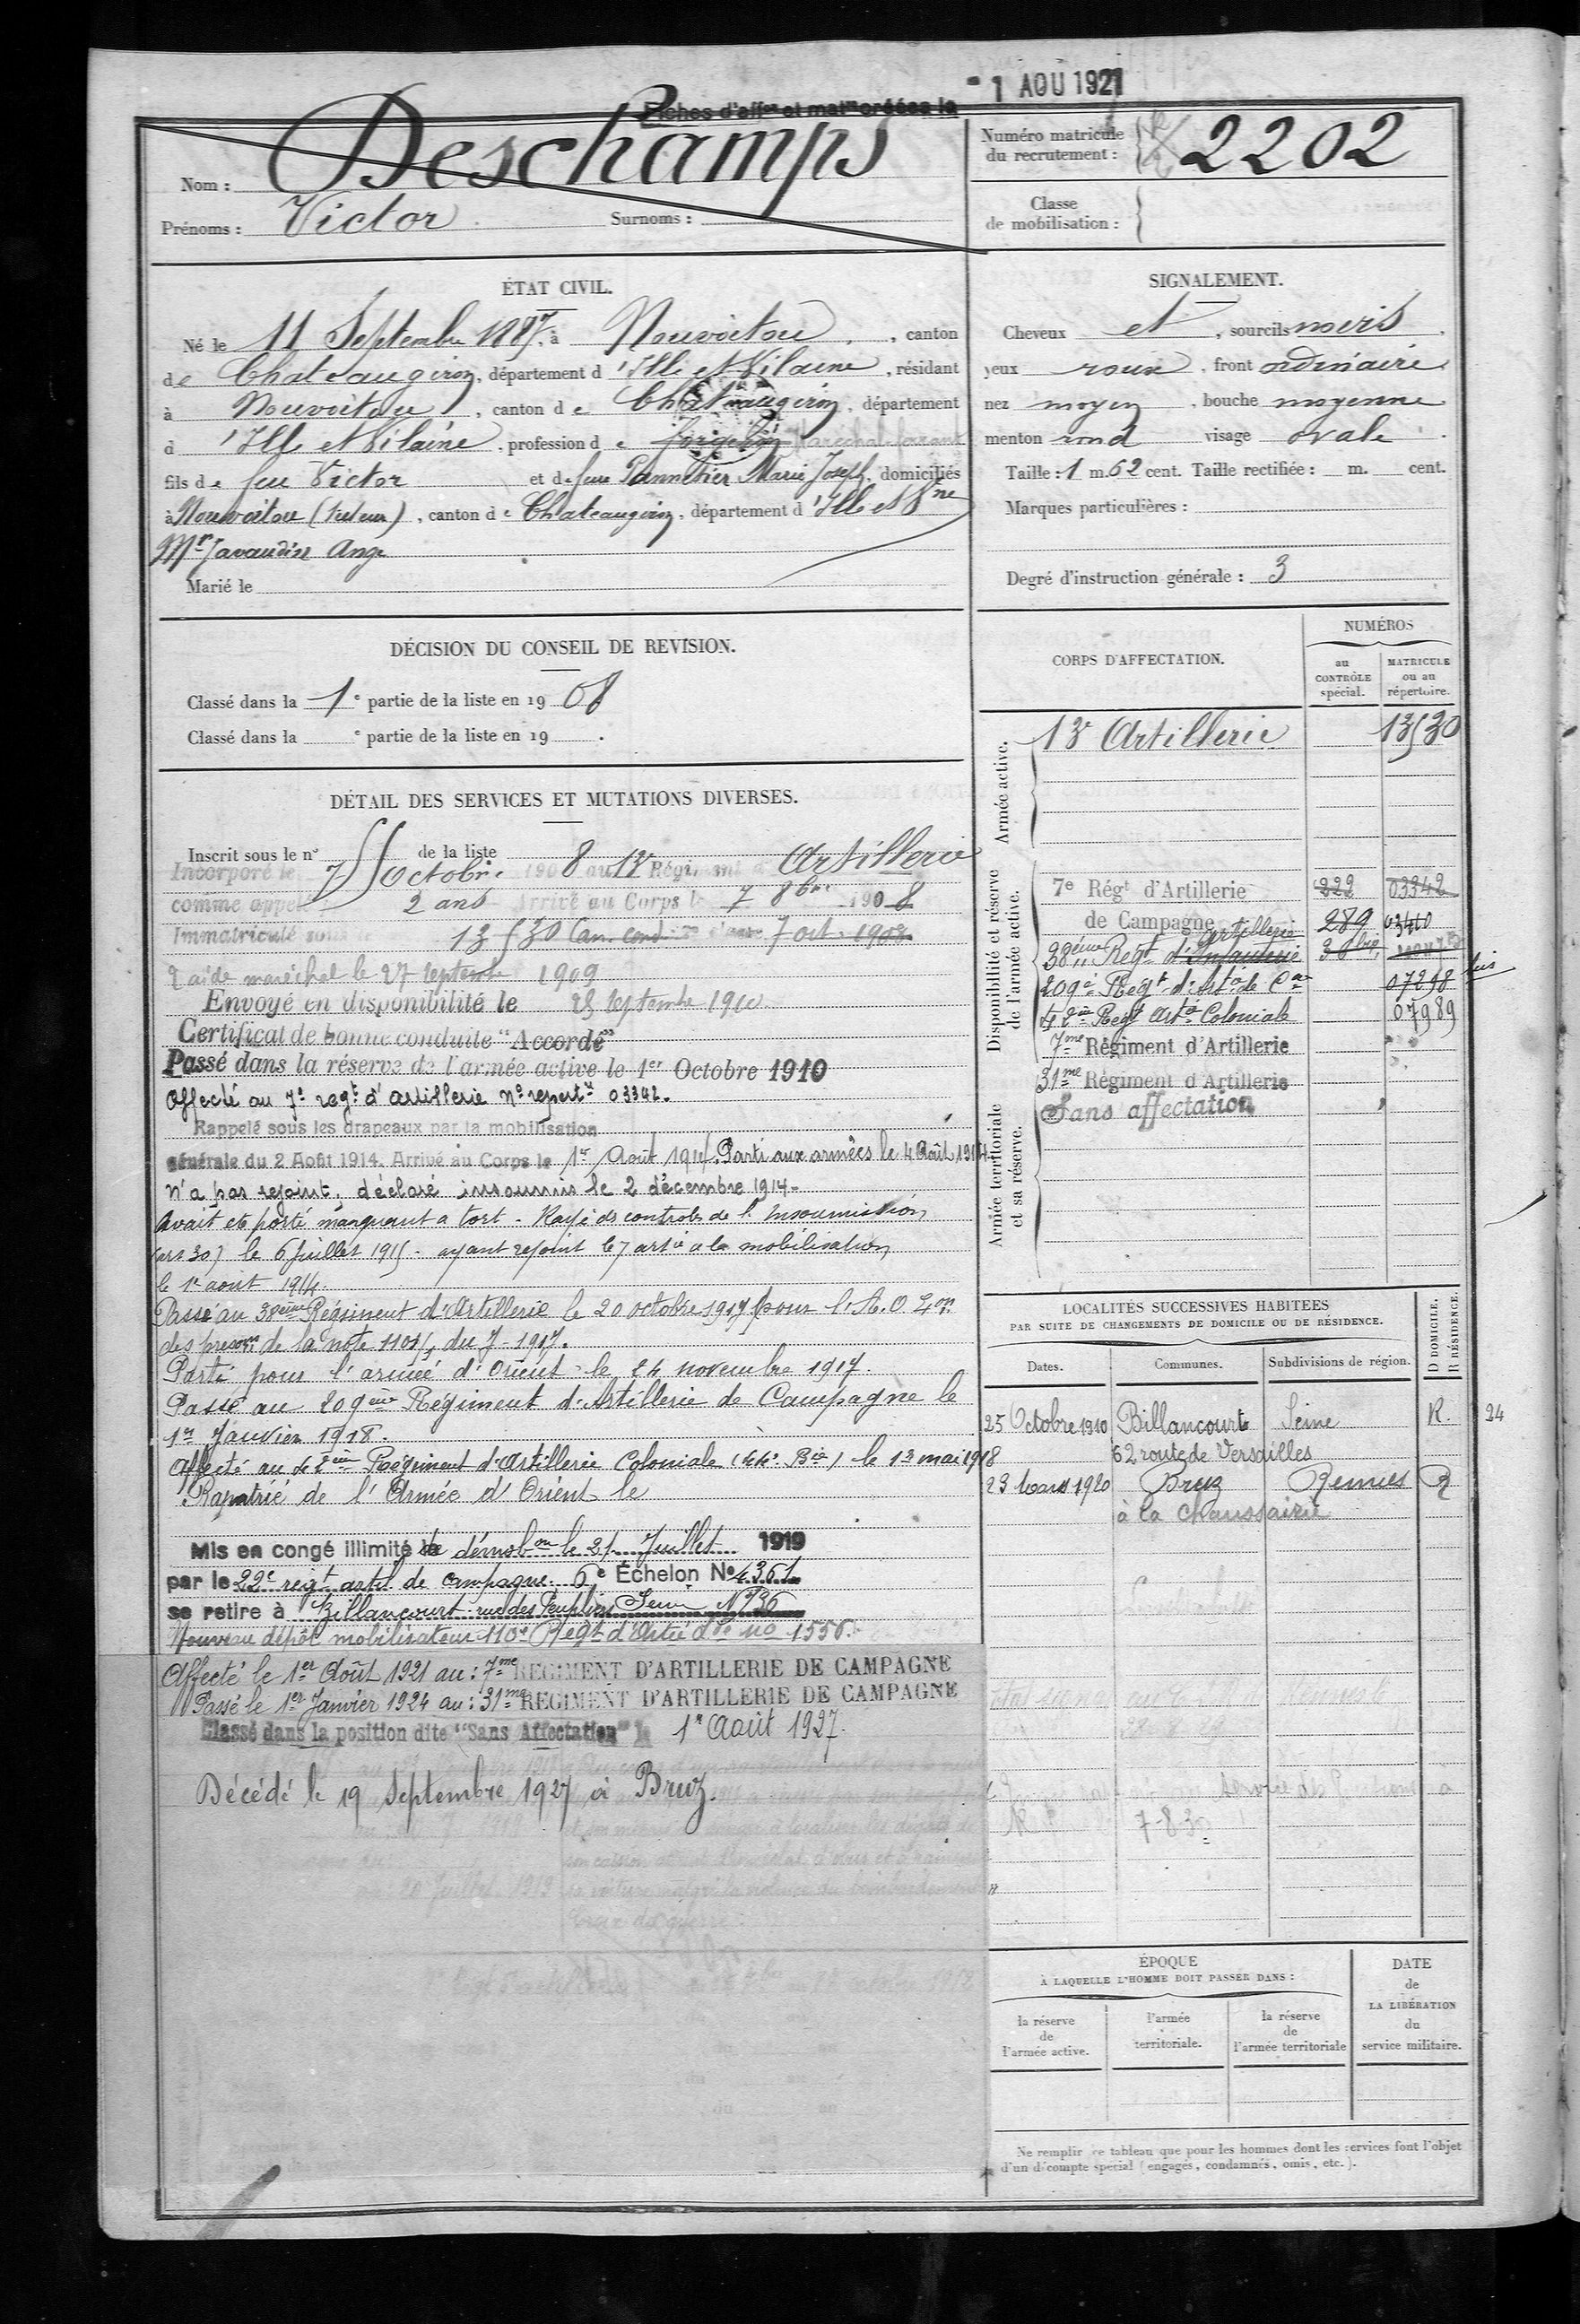 1 AOU 1921
Fiches d'aff^on et mat^on créées le
Nom : Deschamps
Prénoms : Victor Surnoms :
Numéro matricule du recrutement : 2202
Classe de mobilisation :
ÉTAT CIVIL.
Né le 11 Septembre 1887, à Nouvoitou, canton
de Chateaugiron, département d'Ille et Vilaine, résidant
à Nouvoitou, canton de Chateaugiron, département
d'Ille et Vilaine, profession de forgeron Maréchal ferrant
fils de feu Victor et de feue Pannetier Marie Joseph, domiciliés
à Nouvoitou (tuteur), canton de Chateaugiron, département d'Ille et V^ne
M^r Javaudin Ange
Marié le
SIGNALEMENT.
Cheveux et, sourcils noirs
yeux roux, front ordinaire
nez moyen, bouche moyenne
menton rond visage ovale.
Taille : 1 m. 62 cent. Taille rectifiée : m. cent.
Marques particulières :
Degré d'instruction générale : 3
DÉCISION DU CONSEIL DE REVISION.
Classé dans la 1^e partie de la liste en 1908
Classé dans la ^e partie de la liste en 19 .
DÉTAIL DES SERVICES ET MUTATIONS DIVERSES.
Inscrit sous le n° de la liste
Incorporé le 7 Octobre 1908 au 13^e Régiment d'Artillerie
comme appelé 2 ans Arrivé au Corps le 7 8bre 1908
Immatriculé sous le 13530 Can. cond. 2e classe 7 oct. 1908
2^e aide maréchal le 27 Septembre 1909
Envoyé en disponibilité le 25 Septembre 1910
Certificat de bonne conduite "Accordé"
Passé dans la réserve de l'armée active le 1er Octobre 1910
Affecté au 7^e reg^t d'artillerie N° repert^re 03342.
Rappelé sous les drapeaux par la mobilisation
générale du 2 Août 1914. Arrivé au Corps le 1er Août 1914. Parti aux armées le 4 Août 1914.
N'a pas rejoint, déclaré insoumis le 2 décembre 1914-
Avait été porté manquant à tort - Rayé des controles de l'insoumission
(art 30) le 6 Juillet 1915 - ayant rejoint le 7 art^ie à la mobilisation
le 1er aout 1914.
Passé au 38ème Régiment d'Artillerie le 20 octobre 1917 (pour l'A.O.
de la note 1101 du 7-1917.
Parti pour l'armée d'Orient le 24 novembre 1917.
Passé au 209ème Régiment d'Artillerie de Campagne le
1er Janvier 1918.
Affecté au 42ème Régiment d'Artillerie Coloniale (44e Bie) le 13 mai 1918
Rapatrié de l'Armée d'Orient le
Mis en congé illimité de démob^on le 21 Juillet 1919
par le 22^e reg^t artil de campagne. 6^e Échelon N° 4361
se retire à Billancourt rue des Peupliers Seine N° 36
Nouveau dépôt mobilisateur 110^e Reg^t d'Art^ie L^de no 1556.
Affecté le 1er Août 1921 au : 7me REGIMENT D'ARTILLERIE DE CAMPAGNE
Passé le 1er Janvier 1924 au : 31me REGIMENT D'ARTILLERIE DE CAMPAGNE
Classé dans la position dite "Sans Affectation" le 1er Août 1927.
Décédé le 19 Septembre 1927 à Bruz.
CORPS D'AFFECTATION.
NUMÉROS
au CONTRÔLE spécial.
MATRICULE ou au répertoire.
Armée active.
13^e Artillerie 13530
Disponibilité et réserve de l'armée active.
7e Rég^t d'Artillerie 222 03342
de Campagne 289 03410
38ème Reg^t d'Infanterie Artillerie
209e Reg^t d'Art^ie de C^ne 07298 bis
42ème Reg^t Art^ie Coloniale 07989
7me Régiment d'Artillerie
31me Régiment d'Artillerie
Armée territoriale et sa réserve.
Sans affectation
LOCALITÉS SUCCESSIVES HABITÉES
PAR SUITE DE CHANGEMENTS DE DOMICILE OU DE RÉSIDENCE.
D DOMICILE.
R RÉSIDENCE.
Dates. Communes. Subdivisions de région.
25 Octobre 1910 Billancourt Seine R. 24
62 route de Versailles
23 Mars 1920 Bruz Rennes R
à la Chaussairie
7-8-30
ÉPOQUE
À LAQUELLE L'HOMME DOIT PASSER DANS :
la réserve de l'armée active.
l'armée territoriale.
la réserve de l'armée territoriale
DATE de LA LIBÉRATION du service militaire.
Ne remplir ce tableau que pour les hommes dont les services font l'objet
d'un décompte spécial (engagés, condamnés, omis, etc.).